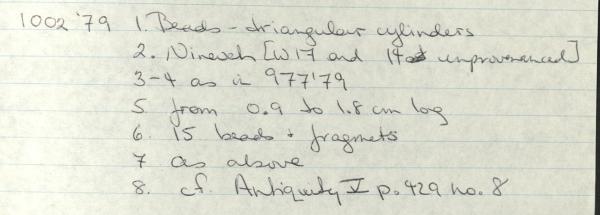 1002 '79 1. Beads - triangular cylinders
2. Nineveh [W17 and 14 unprovenanced]
3-4 as in 977'79
5 from 0.9 to 1.8 cm long
6. 15 beads + fragmets
7 as above
8. cf. Antiquity V p. 429 no. 8